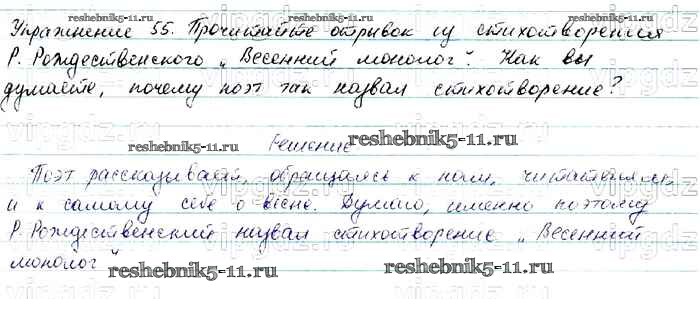 reshebnik5-11.ru reshebnik5-11.ru
Упражнение 55. Прочитайте отрывок из стихотворения
Р. Рождественского „Весенний монолог". Как вы
думаете, почему поэт так назвал стихотворение?
reshebnik5-11.ru Решение reshebnik5-11.ru
Поэт рассказывает, обращаясь к нам, читателям,
и к самому себе о весне. Думаю, именно поэтому
Р. Рождественский назвал стихотворение „Весенний
монолог" reshebnik5-11.ru reshebnik5-11.ru
vipgdz.ru